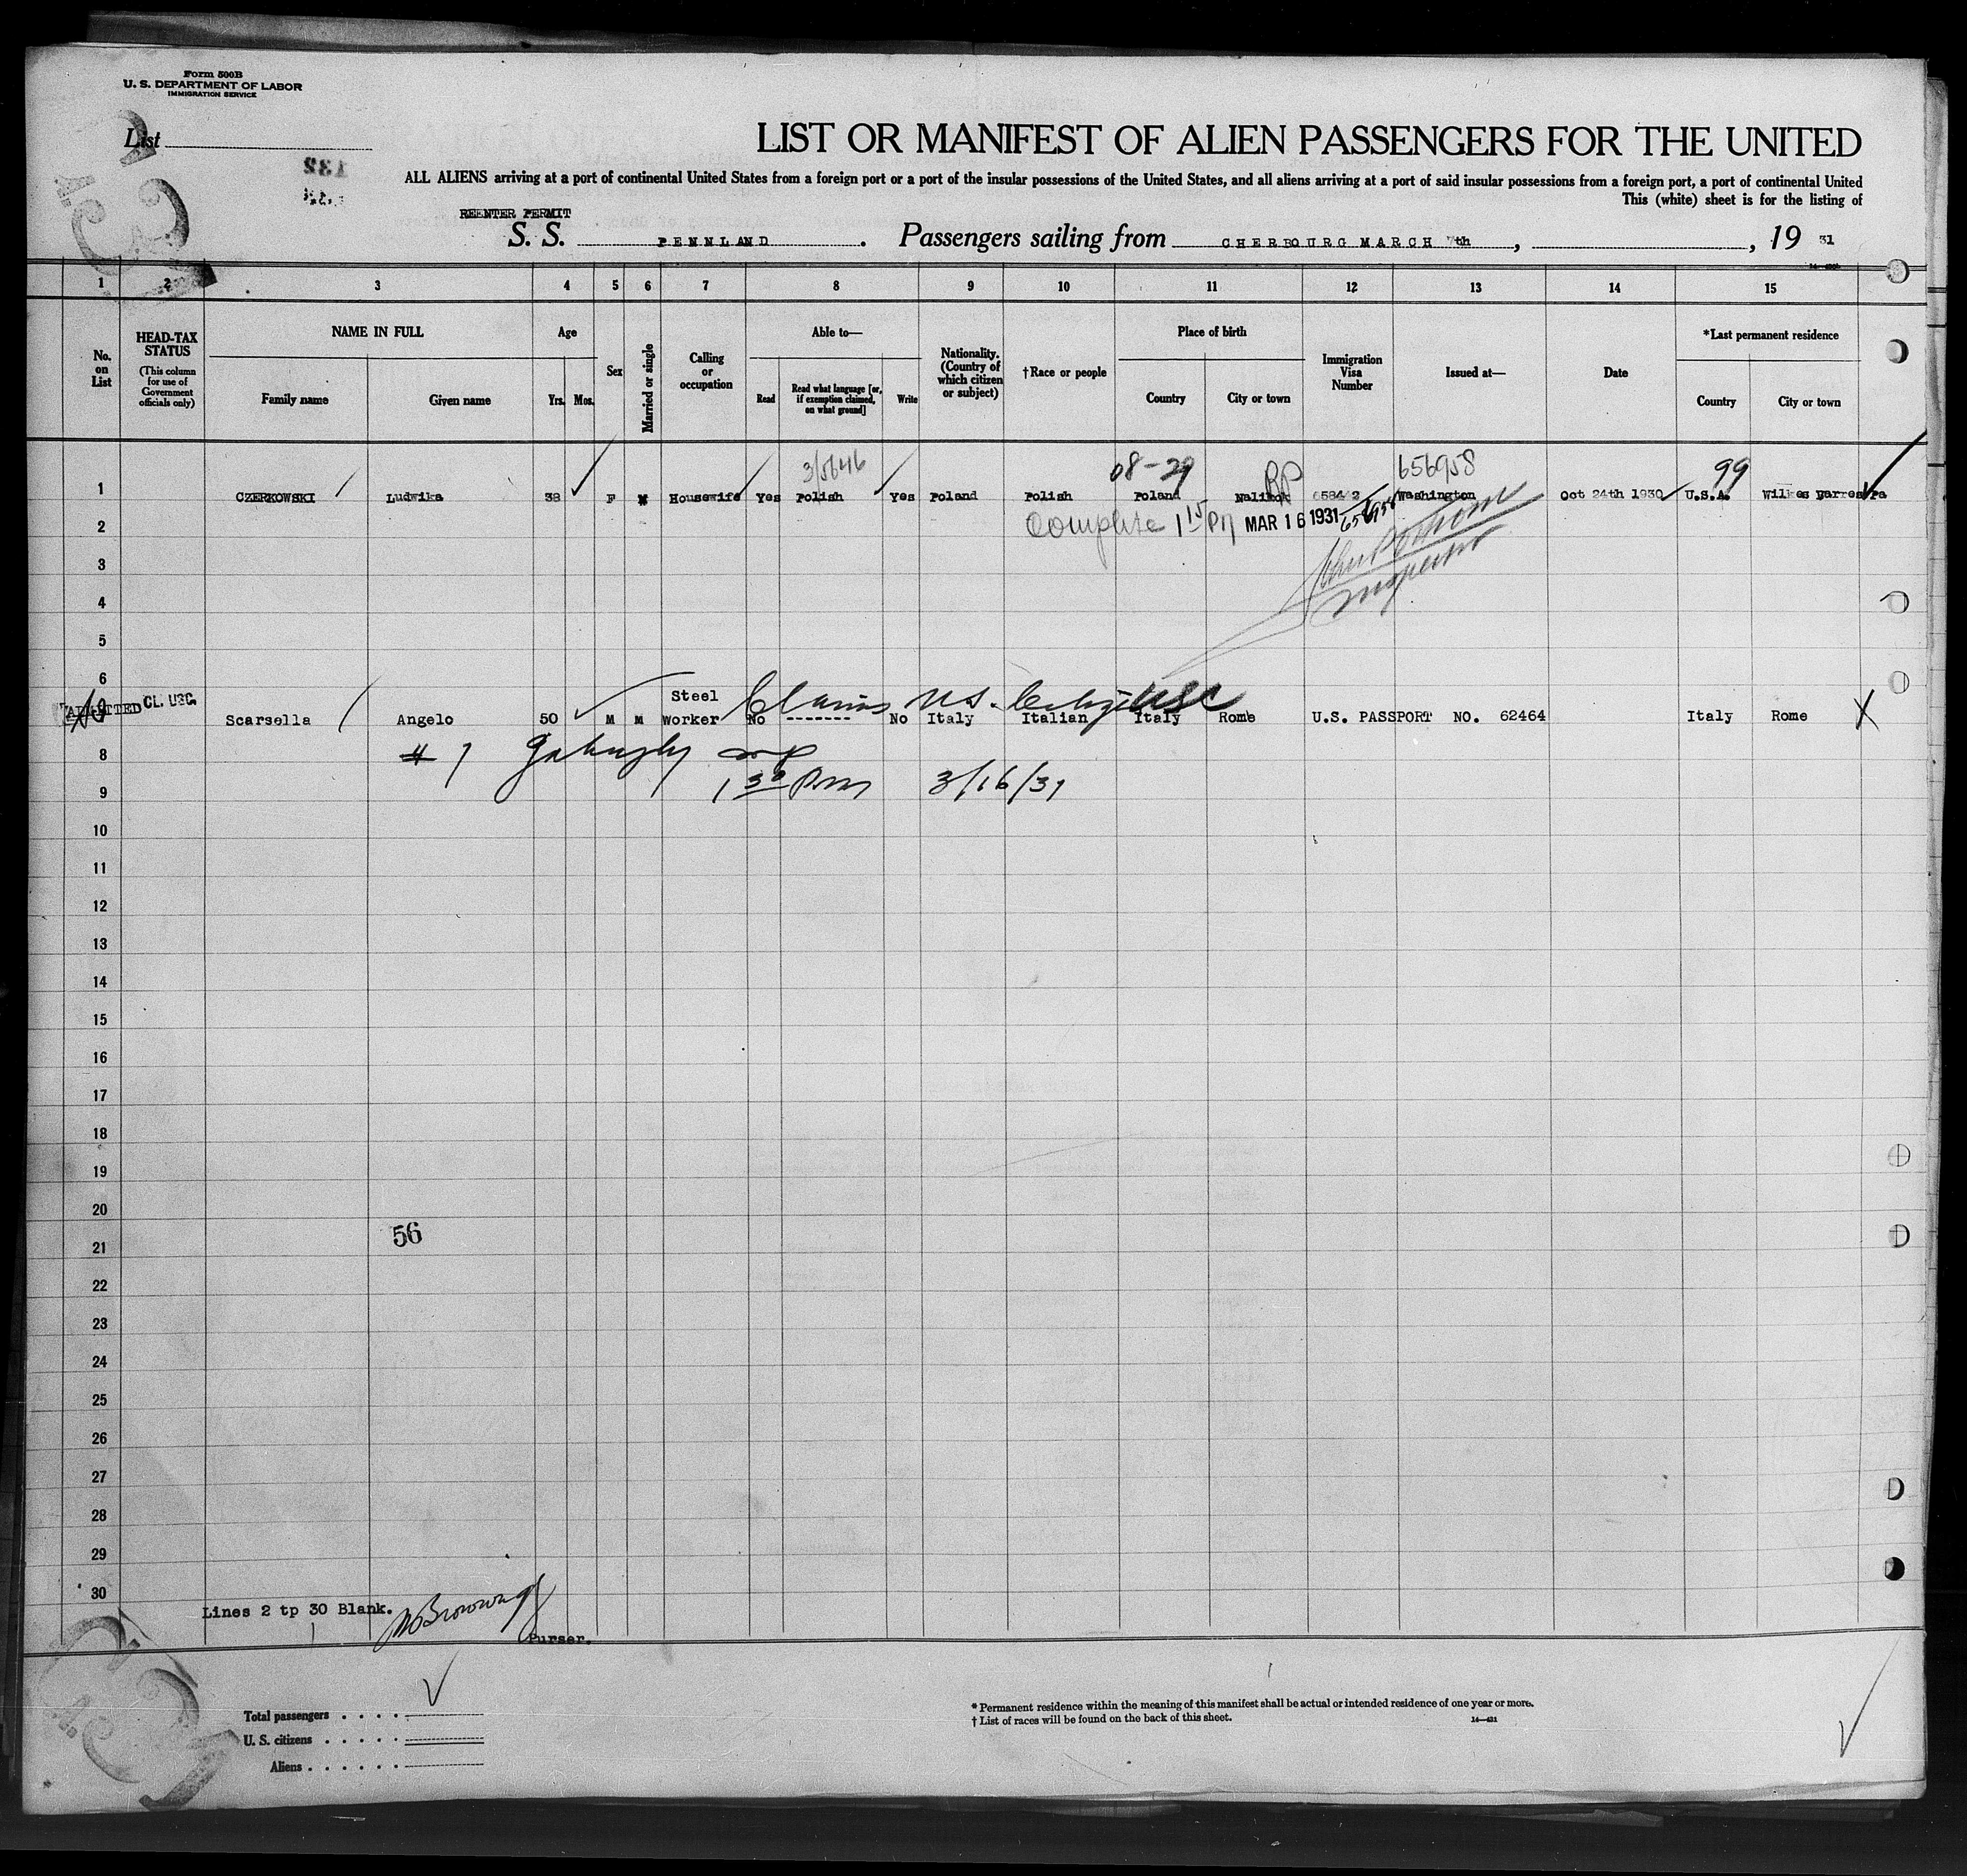 Form 500B
U. S. DEPARTMENT OF LABOR
IMMIGRATION SERVICE
List
132
LIST OR MANIFEST OF ALIEN PASSENGERS FOR THE UNITED
ALL ALIENS arriving at a port of continental United States from a foreign port or a port of the insular possessions of the United States, and all aliens arriving at a port of said insular possessions from a foreign port, a port of continental United
This (white) sheet is for the listing of
REENTER PERMIT
S. S. PENNLAND . Passengers sailing from CHERBOURG MARCH 7th , , 19 31
1 2 3 4 5 6 7 8 9 10 11 12 13 14 15
No. on List
HEAD-TAX STATUS (This column for use of Government officials only)
NAME IN FULL
Family name
Given name
Age
Yrs. Mos.
Sex
Married or single
Calling or occupation
Able to—
Read
Read what language [or, if exemption claimed, on what ground]
Write
Nationality. (Country of which citizen or subject)
†Race or people
Place of birth
Country
City or town
Immigration Visa Number
Issued at—
Date
*Last permanent residence
Country
City or town
08-29 RP 656958 99
1 CZERKOWSKI Ludwika 38 F Housewife Yes Polish Yes Poland Polish Poland Washington Oct 24th 1930 U.S.A. Wilkes Barres Pa
2 Complete 1 15 PM MAR 16 1931
3
Inspector
4
5
6
Steel Claims US. USC
ADMITTED CL. USC.
Scarsella Angelo 50 M M Worker No ------- No Italy Italian Italy Rome U.S. PASSPORT NO. 62464 Italy Rome X
8 # 1
9 1 30 Pm 3/16/31
10
11
12
13
14
15
16
17
18
19
20
56
21
22
23
24
25
26
27
28
29
30
Lines 2 tp 30 Blank.
Purser.
Total passengers . . . .
U. S. citizens . . . . .
Aliens . . . . . .
* Permanent residence within the meaning of this manifest shall be actual or intended residence of one year or more.
† List of races will be found on the back of this sheet.
14—421